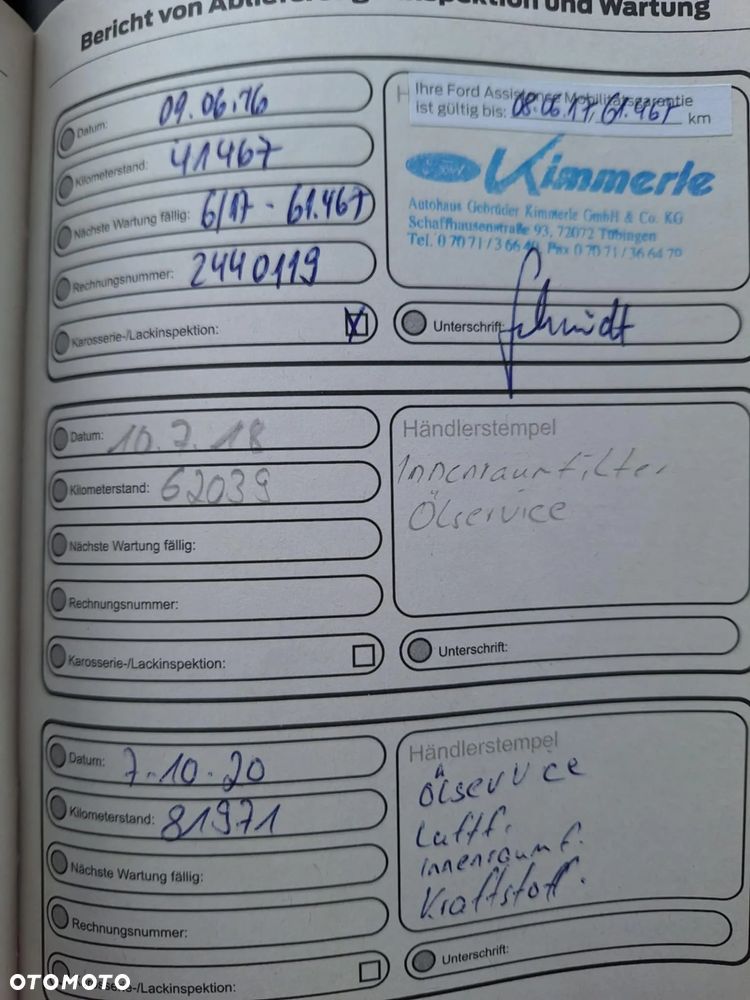 Bericht von Ablieferung Inspektion und Wartung
Datum: 09.06.16
Kilometerstand: 41467
Nächste Wartung fällig: 6/17 - 61.467
Rechnungsnummer: 2440119
Karosserie-/Lackinspektion: X
Ihre Ford Assistance Mobilitätsgarantie
ist gültig bis: 08.06.17, 61.467 km
Kimmerle
Autohaus Gebrüder Kimmerle GmbH & Co. KG
Schaffhausenstraße 93, 72072 Tübingen
Tel. 0 70 71 / 3 66 40, Fax 0 70 71 / 36 64 79
Unterschrift: Schmidt
Datum: 10.7.18
Kilometerstand: 62039
Nächste Wartung fällig:
Rechnungsnummer:
Karosserie-/Lackinspektion:
Händlerstempel
Innenraumfilter
Ölservice
Unterschrift:
Datum: 7-10-20
Kilometerstand: 81971
Nächste Wartung fällig:
Rechnungsnummer:
Karosserie-/Lackinspektion:
Händlerstempel
Ölservice
Luftf.
innenraum f.
Kraftstoff.
Unterschrift:
OTOMOTO